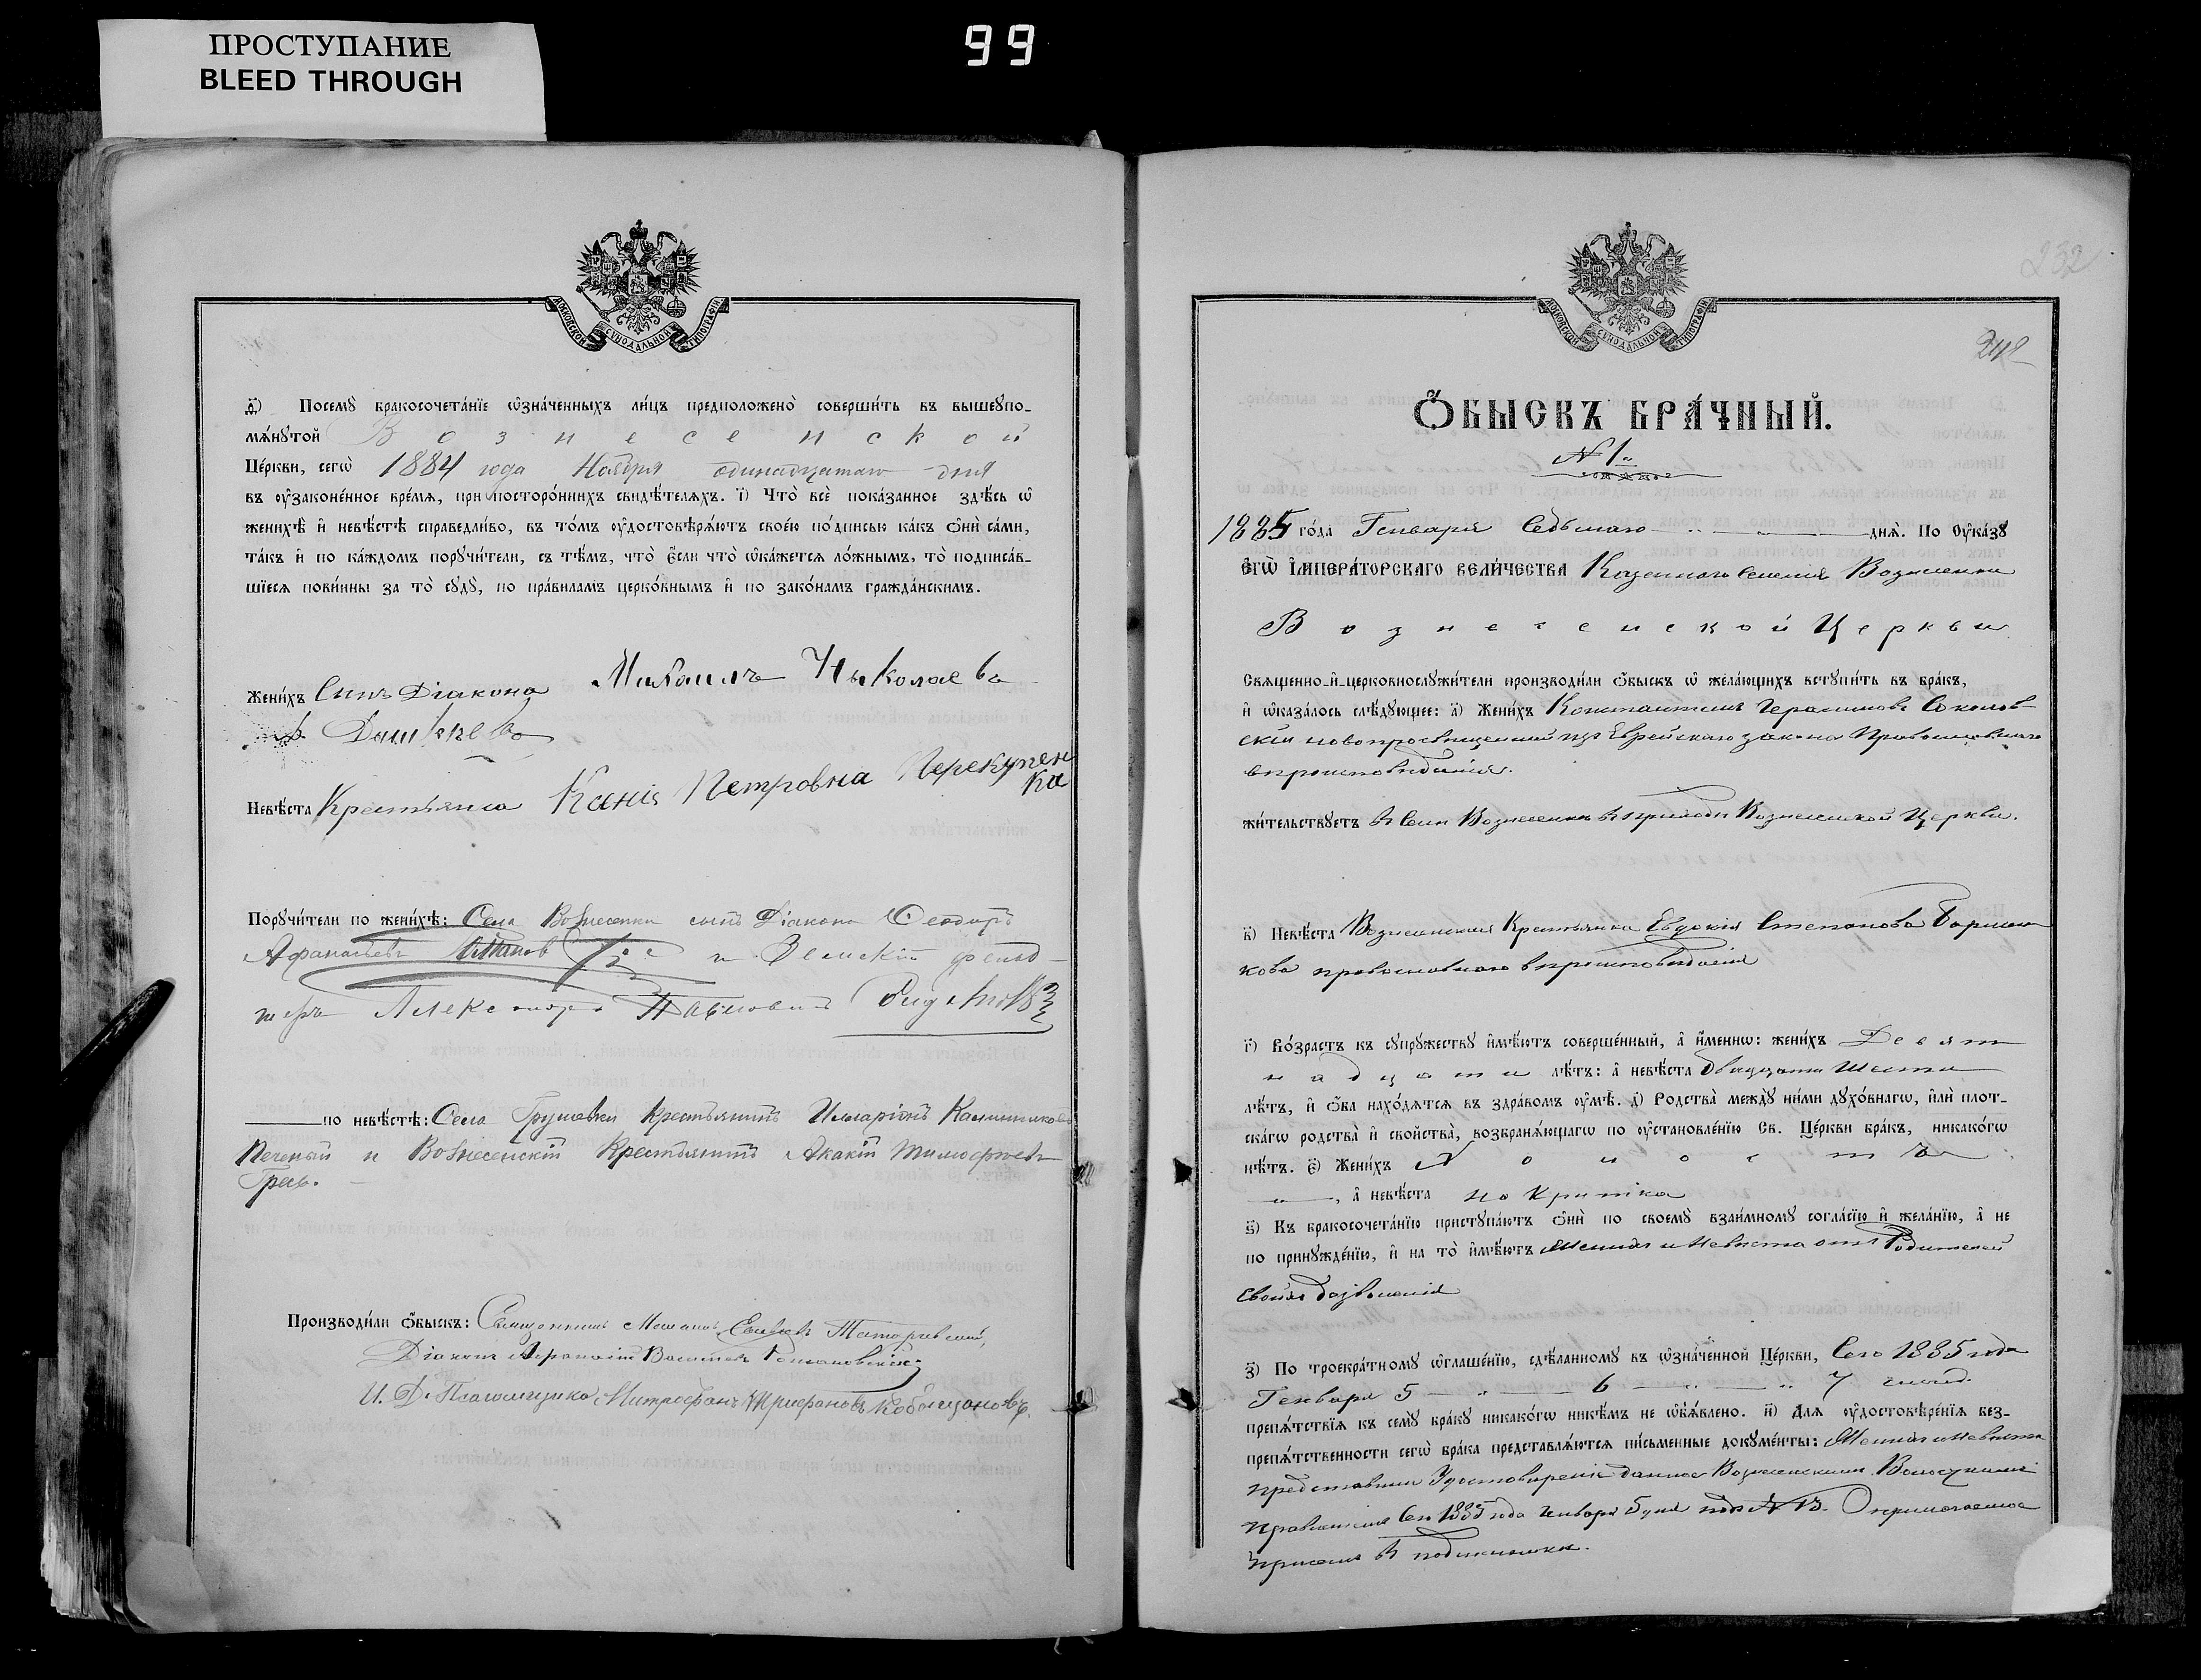 ПРОСТУПАНИЕ
BLEED THROUGH
99
МОСКОВСКОЙ СѴНОДАЛЬНОЙ ТИПОГРАФІИ
ѳ҃) Посемꙋ̀ бракосочета́нїе ѡ҆зна́ченныхъ ли́цъ предположено̀ соверши́ть въ вышеꙋпо-
мѧ́нꙋтой Вознесенской
Це́ркви, сегѡ̀ 1884 года Ноября одинадцатаго дня
въ ᲂу҆законе́нное вре́мѧ, при посторо́ннихъ свидѣ́телѧхъ. і҃) Что̀ всѐ пока́занное здѣ́сь ѡ҆
женихѣ̀ и҆ невѣ́стѣ справедли́во, въ то́мъ ᲂу҆достовѣрѧ́ютъ свое́ю по́дписью ка́къ ѻ҆нѝ са́ми,
та́къ и҆ по ка́ждомъ порꙋчи́тели, съ тѣ́мъ, что̀ є҆́сли что̀ ѡ҆ка́жетсѧ ло́жнымъ, то̀ подписа́в-
шїесѧ пови́нны за то̀ сꙋдꙋ̀, по пра́виламъ церко́внымъ и҆ по зако́намъ гражда́нскимъ.
Жени́хъ Сынъ Діакона Михаилъ Николаевъ
Дашкѣевъ
Невѣ́ста Крестьянка Ксенія Петровна Перекупен
ка
Порꙋчи́тели по женихѣ̀: Села Вознесенки сынъ Діакона Ѳеодоръ
Афанасьевъ и Земскій фельд-
шеръ Александръ Павловичъ
по невѣ́стѣ: Села Грушевки Крестьянинъ Илларіонъ Калинниковъ
Печеный и Вознесенскій Крестьянинъ Акакій Тимофѣевъ
Грев.
Производи́ли ѻ҆́быскъ: Священникъ Татаревскій,
Діаконъ Аѳанасій Васильевъ
И. Д. Псаломщика Митрофанъ Трифоновъ
232
248
МОСКОВСКОЙ СѴНОДАЛЬНОЙ ТИПОГРАФІИ
Ѻ҆́БЫСКЪ БРА́ЧНЫЙ.
№ 1.
1885 го́да Генваря Седьмаго днѧ̀. По Оу҆ка́зꙋ
Є҆гѡ̀ І҆мпера́торскаго вели́чества Казеннаго Селенія Вознесенки
Вознесенской Церкви
Свѧще́нно-и҆-церковнослꙋжи́тели производи́ли ѻ҆́быскъ ѡ҆ жела́ющихъ встꙋпи́ть въ бра́къ,
и҆ ѡ҆каза́лось слѣ́дꙋющее: а҃) Жени́хъ Константинъ Герасимовъ Соколов-
скій новопросвященный изъ Еврейскаго закона Православнаго
вѣроисповѣданія.
жи́тельствꙋетъ въ Селѣ Вознесенкѣ въ приходѣ Вознесенской Церкви.
в҃) Невѣ́ста Вознесенская Крестьянка Евдокія Степанова
кова православнаго вѣроисповѣданія
г҃) Во́зрастъ къ сꙋпрꙋ́жествꙋ и҆мѣ́ютъ соверше́нный, а҆ и҆́менно: жени́хъ Девят
надцати лѣ́тъ: а҆ невѣ́ста двадцати шести
лѣ́тъ, и҆ ѻ҆́ба нахо́дѧтсѧ въ здра́вомъ ᲂу҆мѣ̀. д҃) Родства̀ междꙋ̀ ни́ми дꙋхо́внагѡ, и҆лѝ плот-
ска́гѡ родства̀ и҆ свойства̀, возбранѧ́ющагѡ по ᲂу҆становле́нїю Св. Це́ркви бра́къ, никако́гѡ
нѣ́тъ. є҃) Жени́хъ Холостъ
, а҆ невѣ́ста покритка
ѕ҃) Къ бракосочета́нїю пристꙋпа́ютъ ѻ҆нѝ по своемꙋ̀ взаи́мномꙋ согла́сїю и҆ жела́нїю, а҆ не
по принꙋжде́нїю, и҆ на то̀ и҆мѣ́ютъ Женихъ и Невѣста отъ Родителей
своихъ дозволенія
з҃) По троекра́тномꙋ ѡ҆глаше́нїю, сдѣ́ланномꙋ въ ѡ҆зна́ченной Це́ркви, Сего 1885 года
Генваря 5 — 6 — 7 чиселъ
препѧ́тствїѧ къ семꙋ̀ бра́кꙋ никако́гѡ никѣ́мъ не ѡ҆б̾ѧ́влено. и҃) Длѧ ᲂу҆достовѣре́нїѧ без-
препѧ́тственности сегѡ̀ бра́ка представлѧ́ютсѧ пи́сьменные докꙋме́нты: Женихъ и Невѣста
представили Удостовѣреніе данное Вознесенскимъ Волостнымъ
правленіемъ Сего 1885 года Генваря 5 дня подъ № 13.